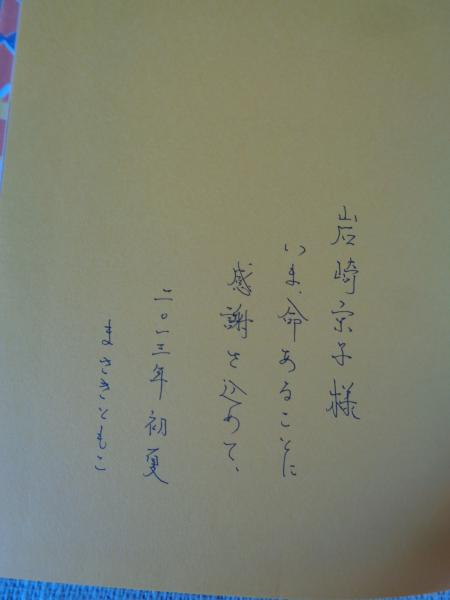 岩崎京子様
いま、命あることに
感謝を込めて、
二〇一三年初夏
まさきともこ